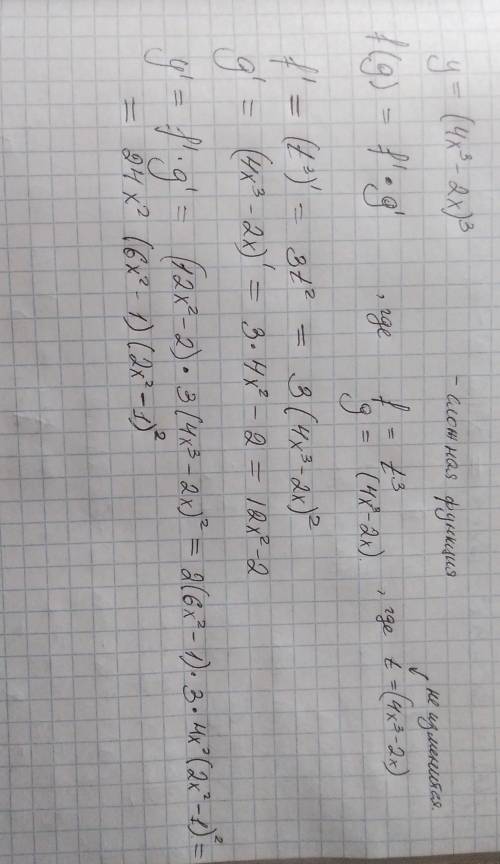 y = (4x³ - 2x)³ - сложная функция
f(g) = f' · g' , где f = t³ , где t = (4x³ - 2x)
g = (4x³ - 2x). не изменится.
f' = (t³)' = 3t² = 3(4x³ - 2x)²
g' = (4x³ - 2x)' = 3·4x² - 2 = 12x² - 2
y' = f' · g' = (12x² - 2) · 3(4x³ - 2x)² = 2(6x² - 1) · 3 · 4x² (2x² - 1)² =
= 24x² (6x² - 1)(2x² - 1)²